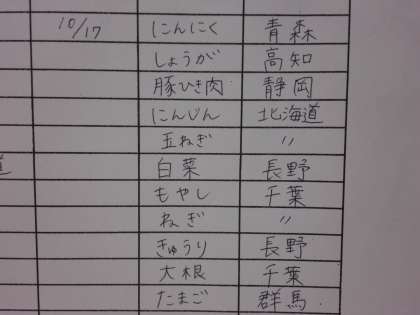 10/17 にんにく 青森
しょうが 高知
豚ひき肉 静岡
にんじん 北海道
玉ねぎ 〃
白菜 長野
もやし 千葉
ねぎ 〃
きゅうり 長野
大根 千葉
たまご 群馬